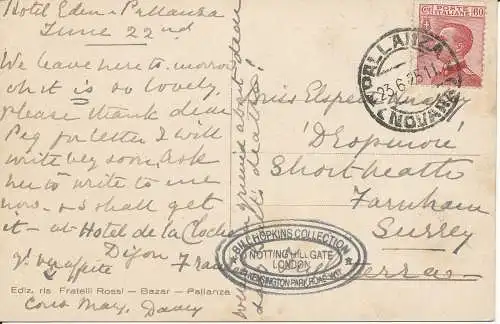 Hotel Eden - Pallanza
June 22nd
We leave here to-morrow
oh it is so lovely.
please thank dear
Peg for letter I will
write very soon. Ask
her to write to me
now - & I shall get
it at - Hotel de la Cloche
Dijon
France
Ediz. ris. Fratelli Rossi - Bazar - Pallanza
very grieved about dear
death
POSTE ITALIANE
60
PALLANZA
23.6.25.11
NOVARA
Miss Elspeth
"Dropmore"
Shortheath
Farnham
Surrey
BILL HOPKINS COLLECTION
NOTTING HILL GATE
LONDON
KENSINGTON PARK ROAD W11